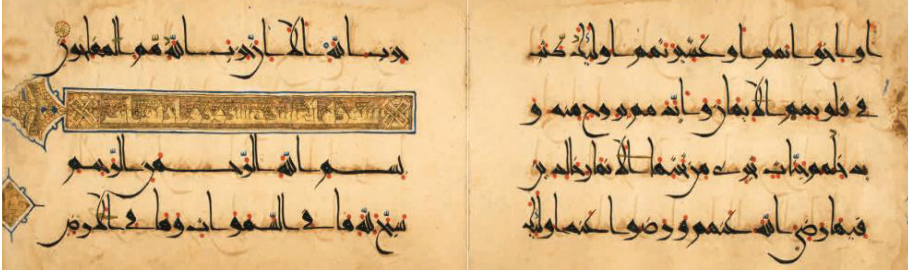 او اخوانهم او عشيرتهم اولئك كتب
في قلوبهم الايمان وايدهم بروح منه و
يدخلهم جنات تجري من تحتها الانهار خالدين
فيها رضي الله عنهم ورضوا عنه اولئك
حزب الله الا ان حزب الله هم المفلحون
بسم الله الرحمن الرحيم
سبح لله ما في السموات وما في الارض